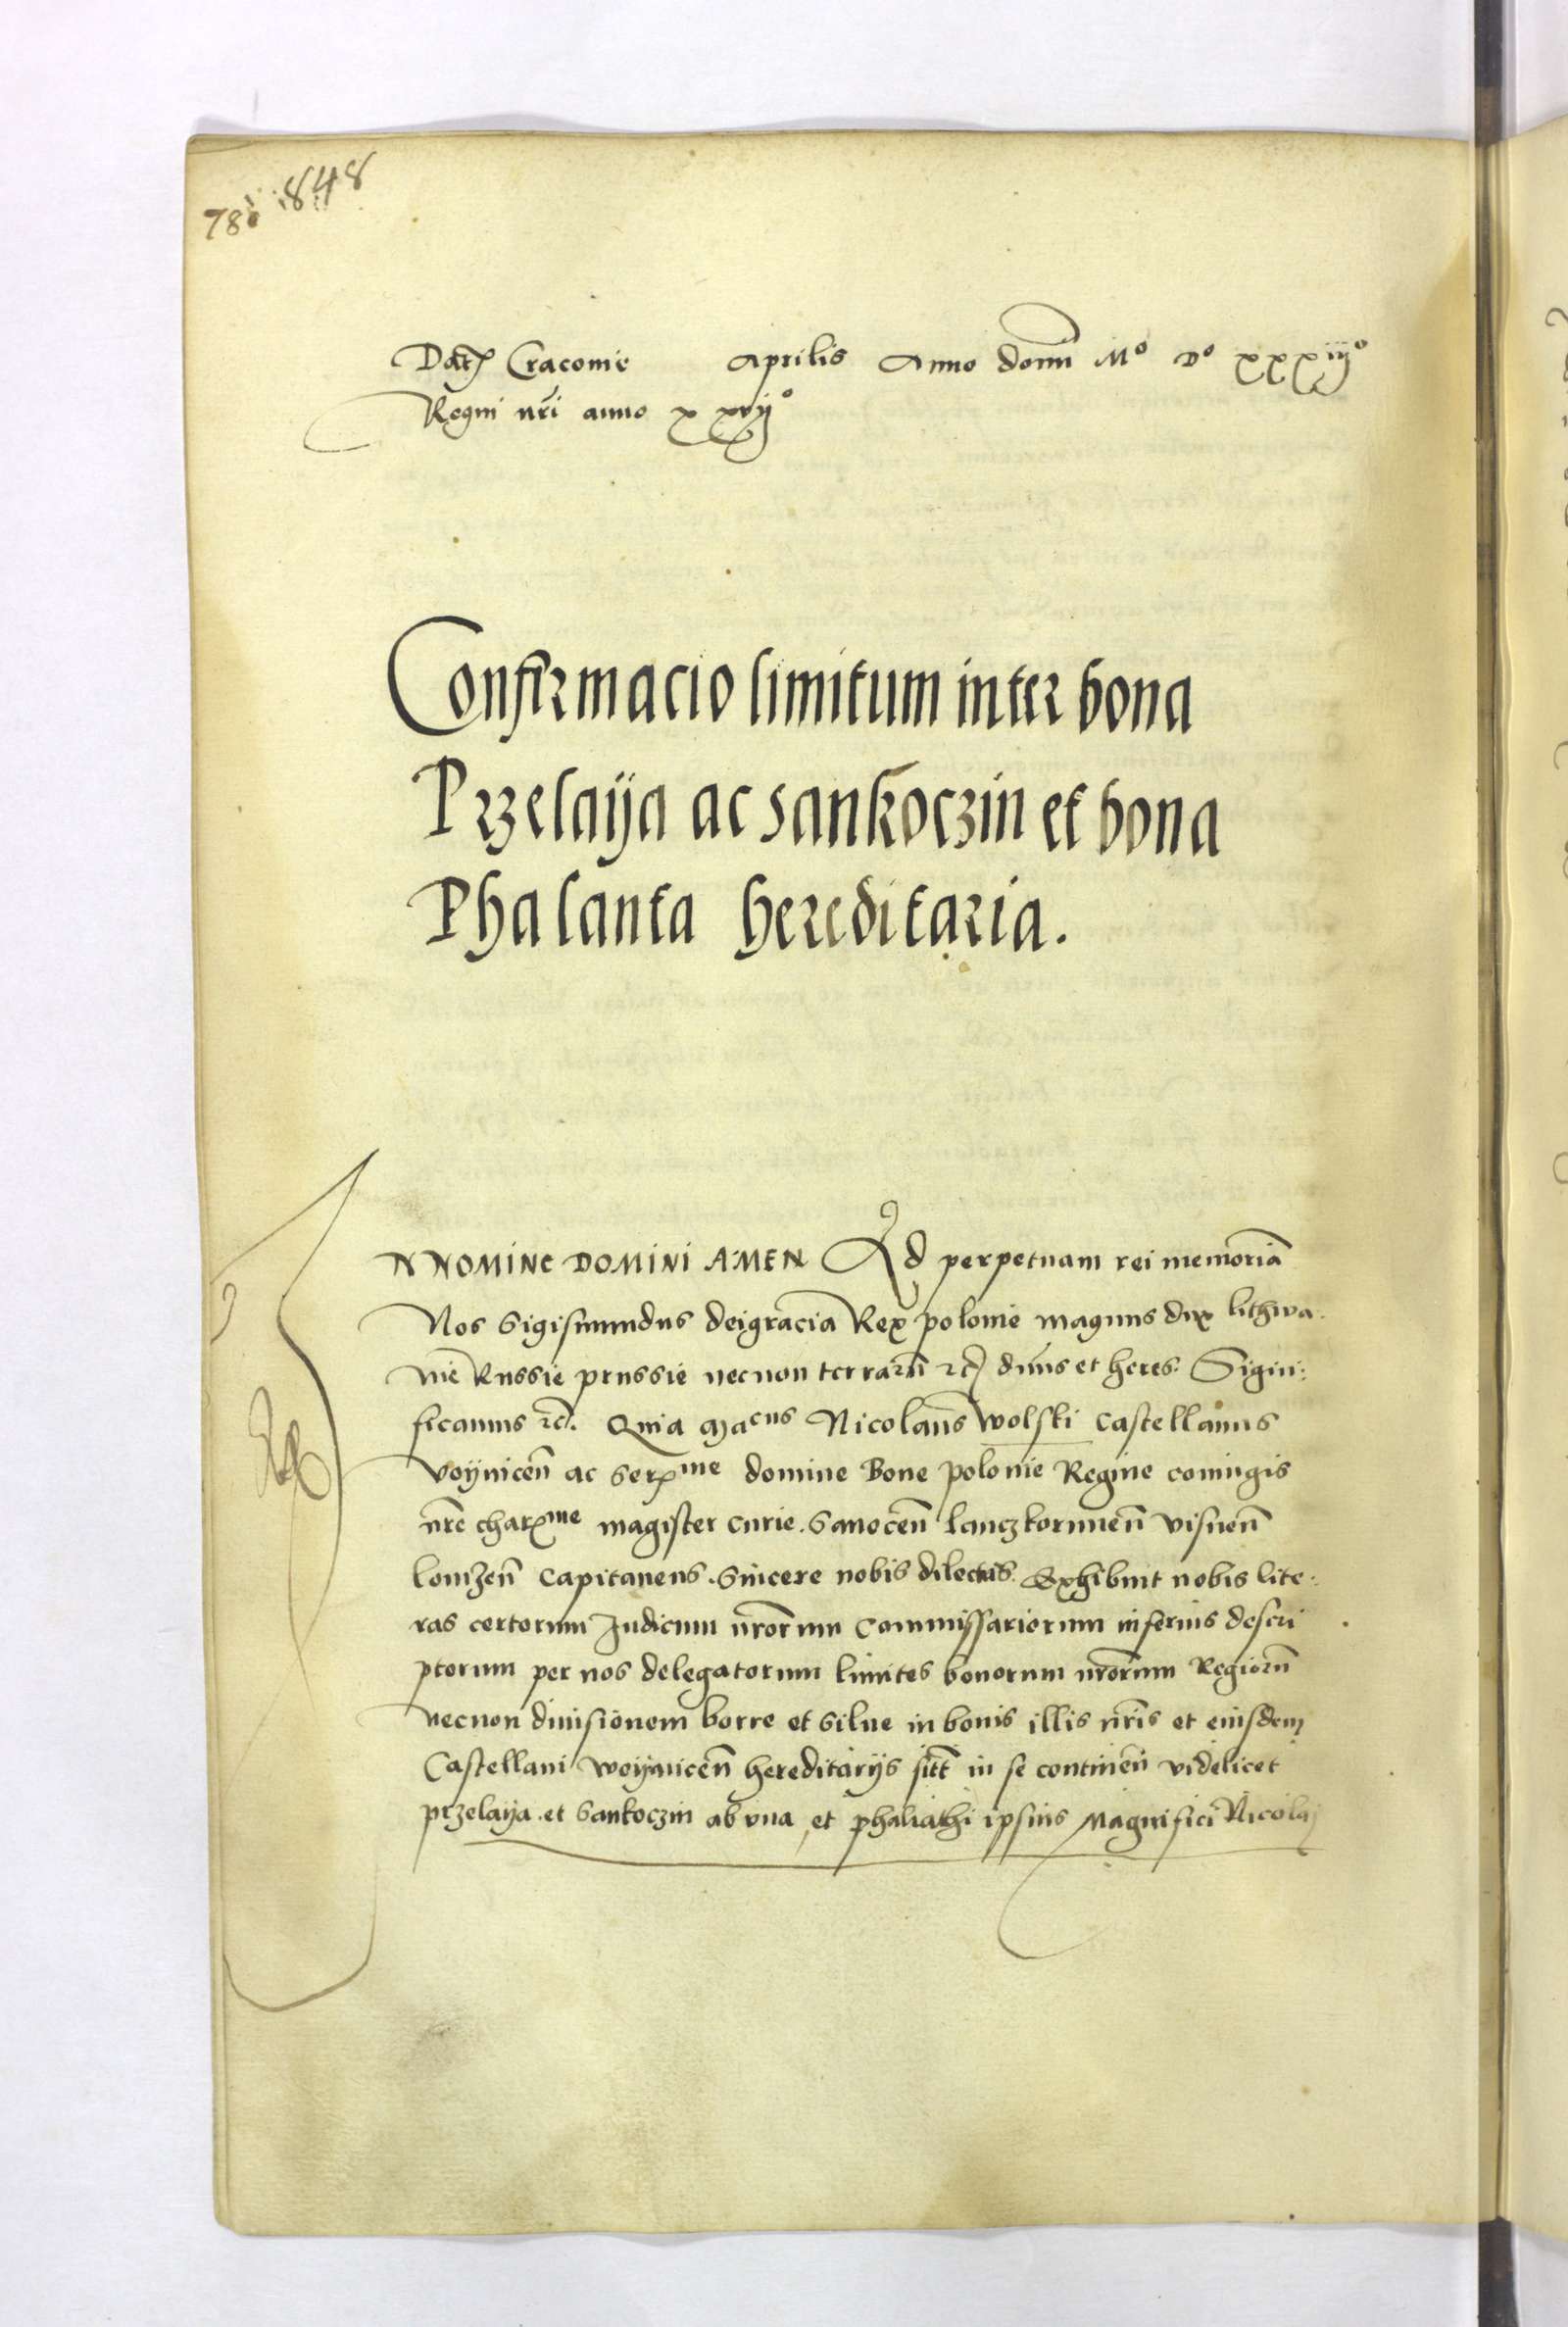 848
780
Datj Cracovie Aprilis Anno domi Mº Dº xxxiijº
Regni nri anno xxvijº
Confirmacio limitum inter bona
Przelaija ac Sankoczin et bona
Phalanta hereditaria.
IN NOMINE DOMINI AMEN Ad perpetuam rei memoriā
Nos Sigismundus dei gracia Rex polonie magnus dux lithwa
nie Russie prussie necnon terrarū etc dnus et heres. Signi:
ficamus etc. Quia Macus Nicolaus Wolski Castellanus
voijniceñ ac Serme domine Bone polonie Regine coniugis
nre charme magister curie. Sanoceñ lanczkoruneñ visneñ
lomzeñ Capitaneus. Sincere nobis dilectus. Exhibuit nobis lite:
ras certorum Judicum nrorum Commissariorum inferius descri
ptorum per nos delegatorum limites bonorum nrorum Regiorū
necnon divisionem borre et silue in bonis illis nris et eiusdem
Castellani woijniceñ hereditarijs sitt in se continen videlicet
przelaija et Sankoczin ab vna, et phaliathi ipsius Magnifici Nicolaj